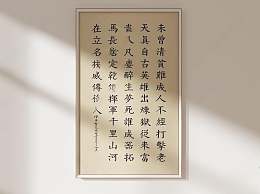 未曾清貧難成人不經打擊老
天真自古英雄出煉獄從來富
貴入凡塵醉生夢死誰成器拓
馬長槍定乾坤揮軍千里山河
在立名揚威傳後人